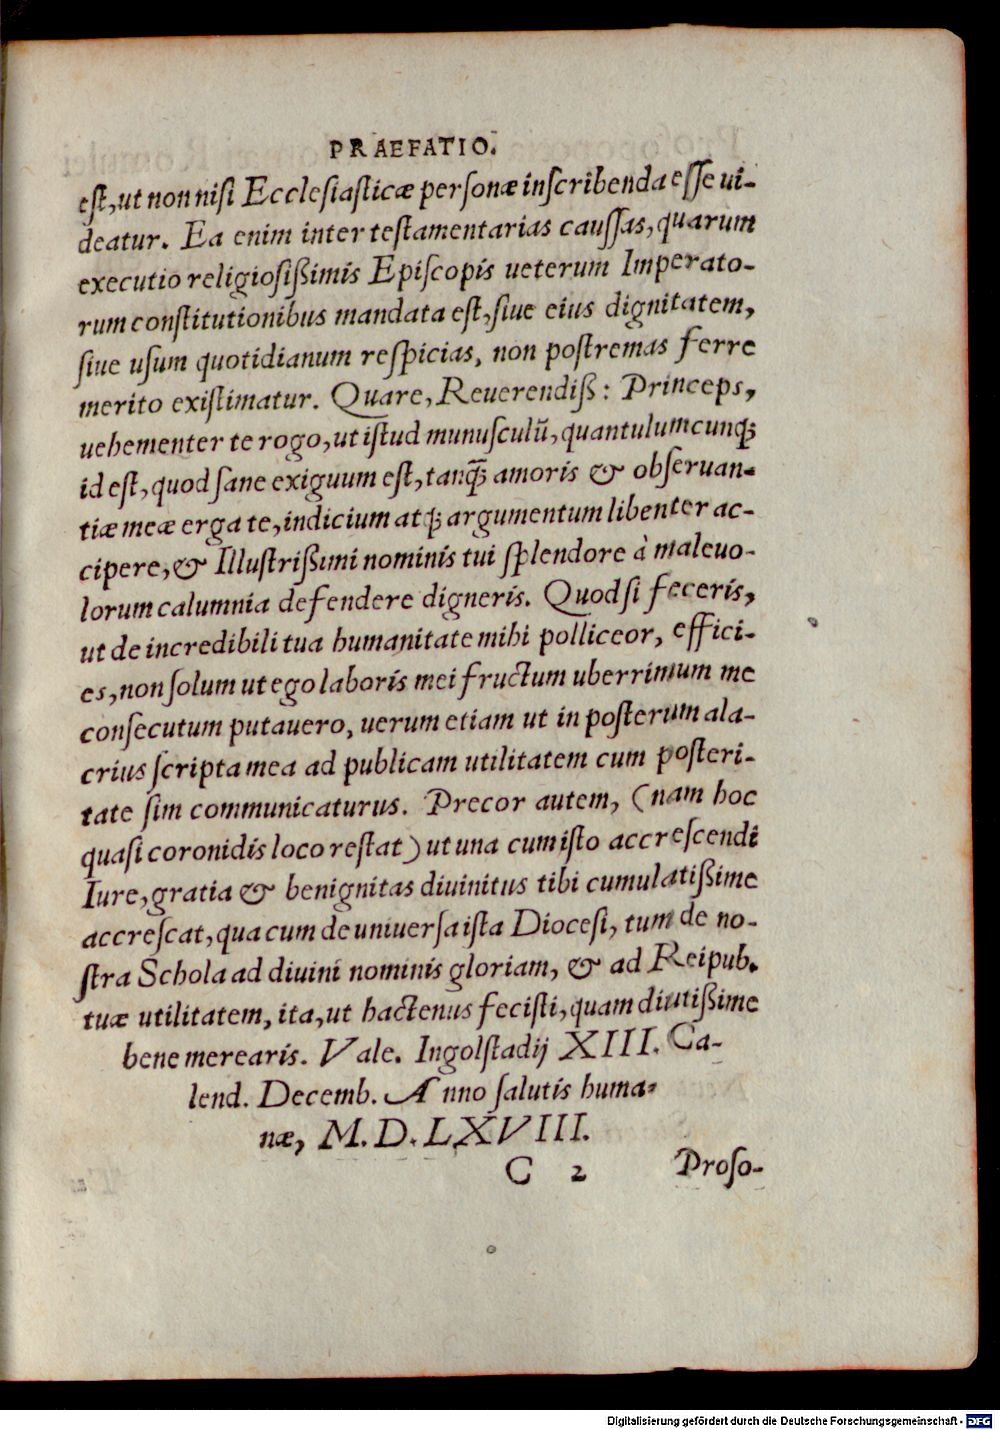 PRAEFATIO.
eſt, ut non niſi Eccleſiaſticæ perſonæ inſcribenda eſſe ui-
deatur. Ea enim inter teſtamentarias cauſſas, quarum
executio religioſißimis Epiſcopis ueterum Imperato-
rum conſtitutionibus mandata eſt, ſiue eius dignitatem,
ſiue uſum quotidianum reſpicias, non poſtremas ferre
merito exiſtimatur. Quare, Reuerendiß: Princeps,
uehementer te rogo, ut iſtud munuſculũ, quantulumcunq́;
id eſt, quod ſane exiguum eſt, tanq̃; amoris & obſeruan-
tiæ meæ erga te, indicium atq́; argumentum libenter ac-
cipere, & Illuſtrißimi nominis tui ſplendore à maleuo-
lorum calumnia defendere digneris. Quod ſi feceris,
ut de incredibili tua humanitate mihi polliceor, effici-
es, non ſolum ut ego laboris mei fructum uberrimum me
conſecutum putauero, uerum etiam ut in poſterum ala-
crius ſcripta mea ad publicam utilitatem cum poſteri-
tate ſim communicaturus. Precor autem, (nam hoc
quaſi coronidis loco reſtat) ut una cum iſto accreſcendi
Iure, gratia & benignitas diuinitus tibi cumulatißime
accreſcat, qua cum de uniuerſa iſta Dioceſi, tum de no-
ſtra Schola ad diuini nominis gloriam, & ad Reipub.
tuæ utilitatem, ita, ut hactenus feciſti, quam diutißime
bene merearis. Vale. Ingolſtadij XIII. Ca-
lend. Decemb. Anno ſalutis huma-
næ, M. D. LXVIII.
C 2 Proſo-
Digitalisierung gefördert durch die Deutsche Forschungsgemeinschaft - DFG